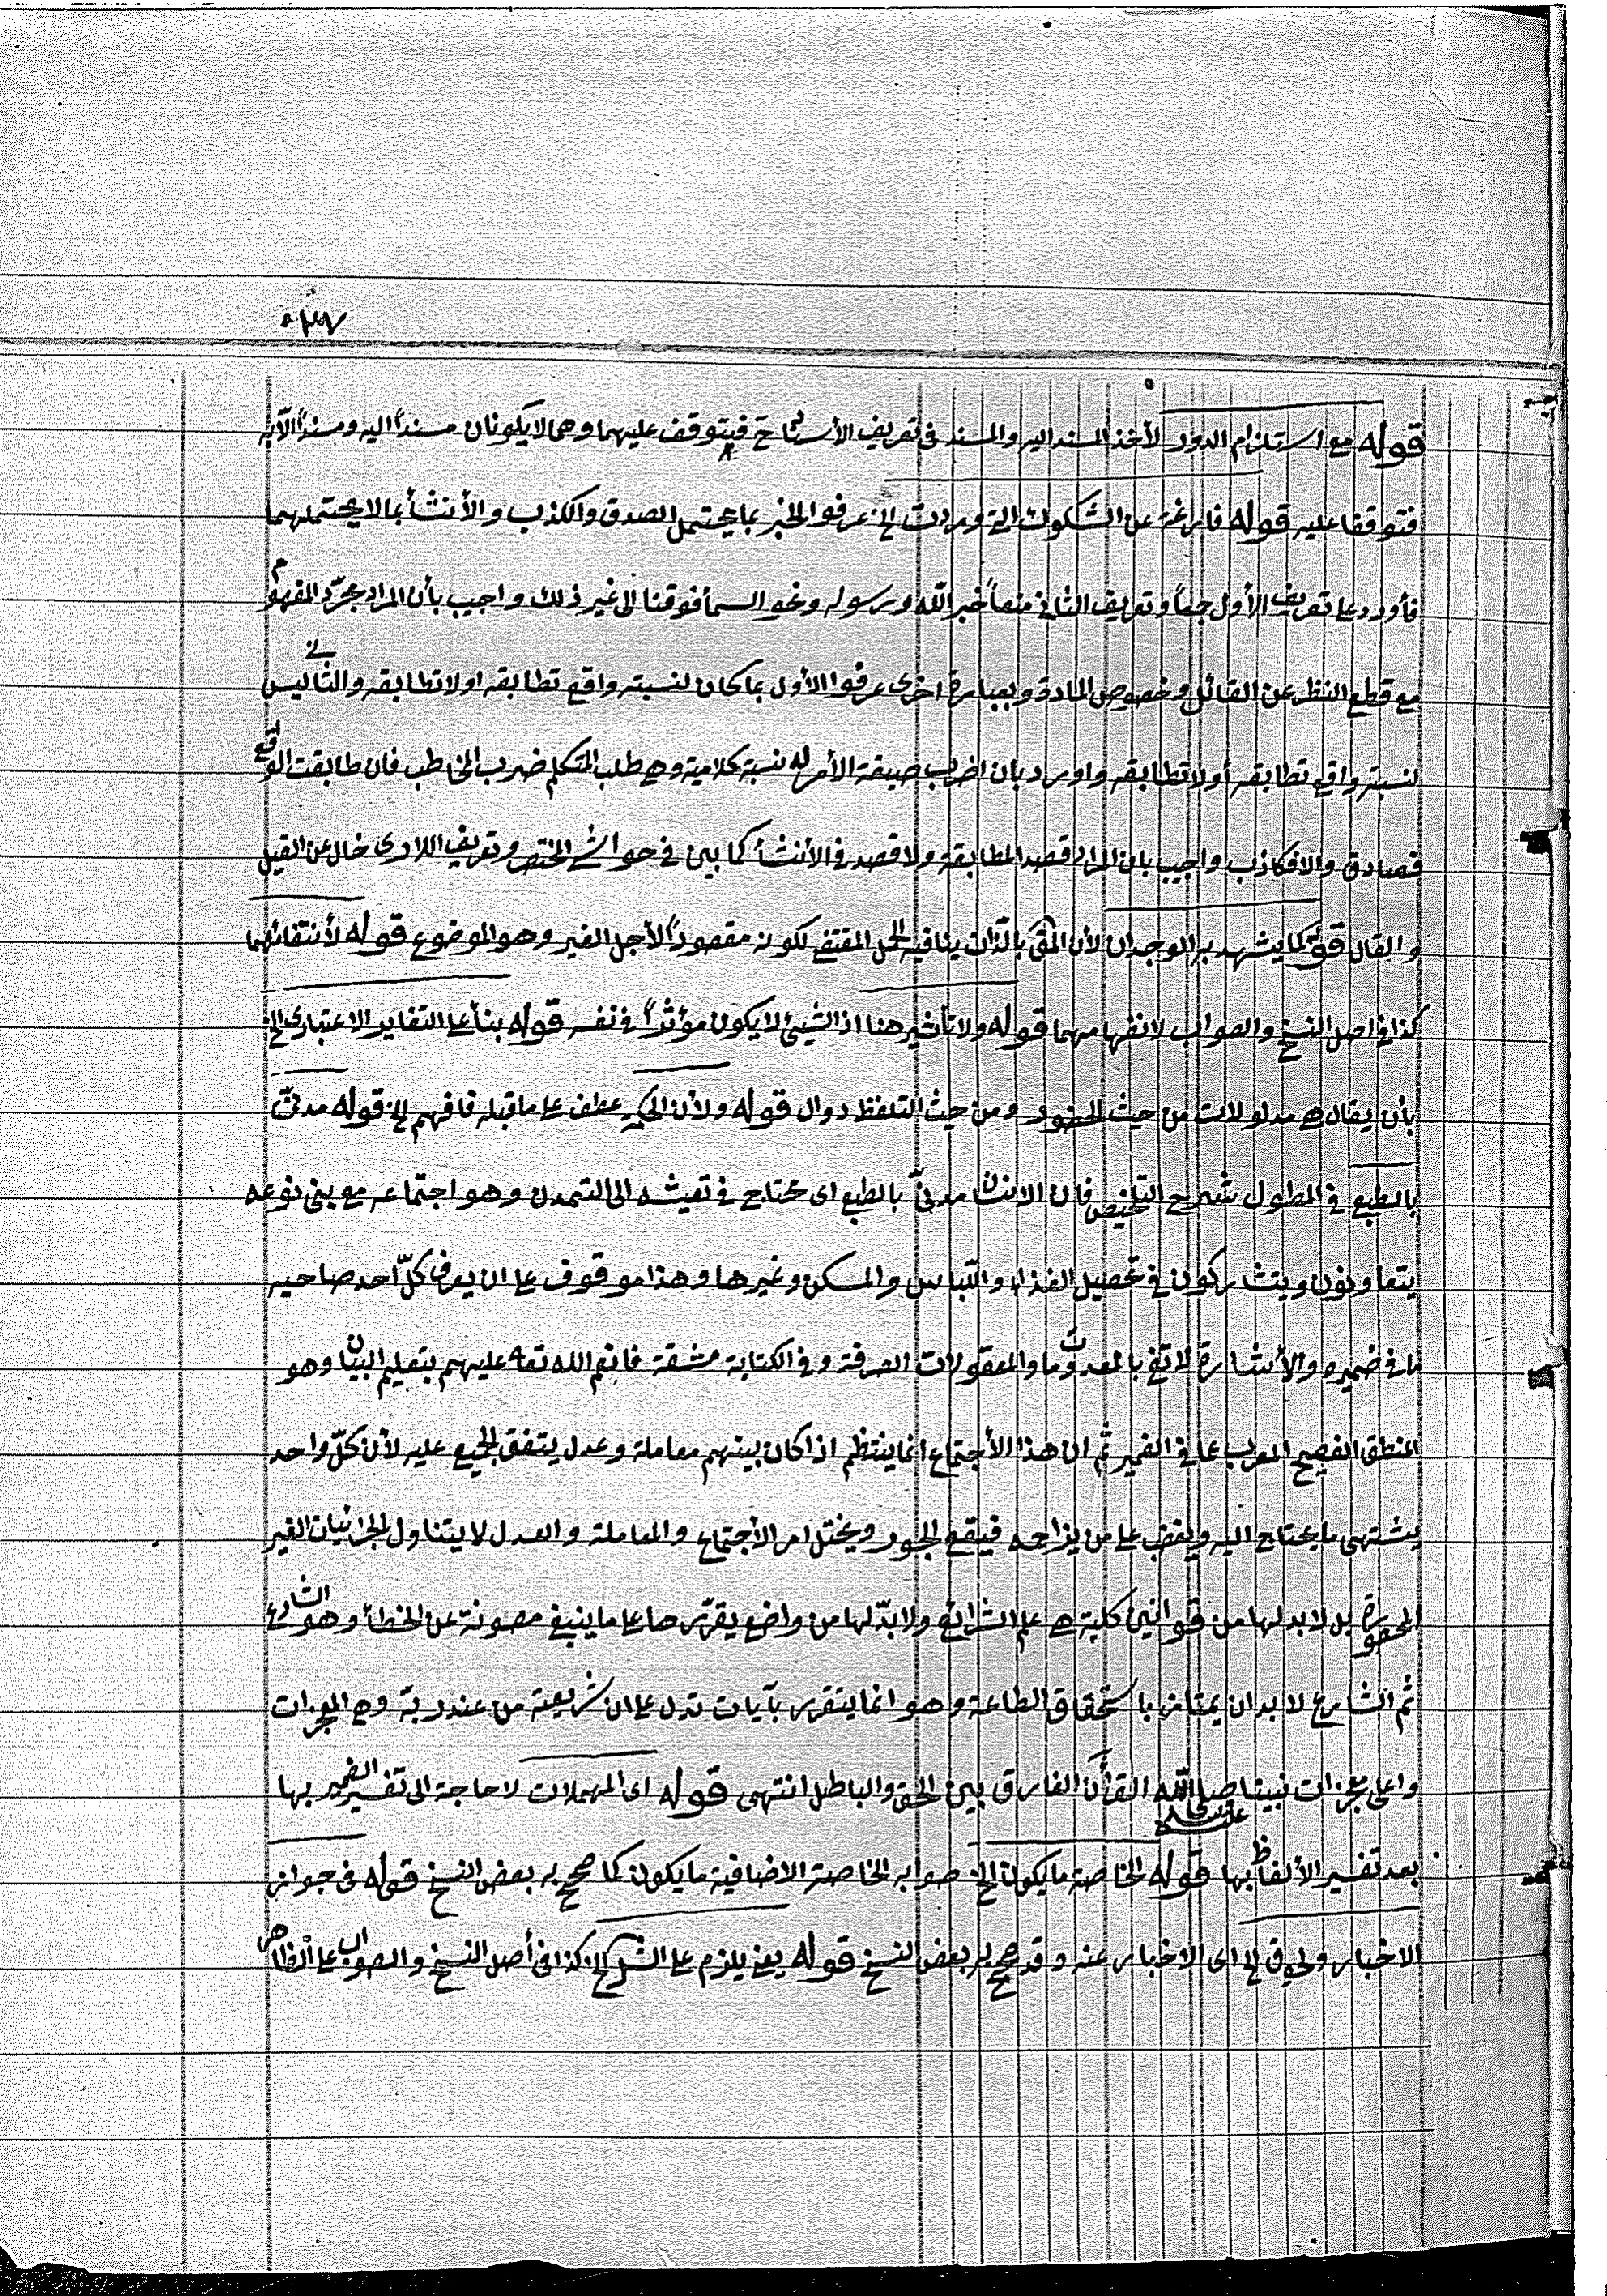 قوله مع استلزام الدور لأخذ المسند اليه والمسند فى تعريف الأسناد ح فيتوقف عليهما وهما لا يكونان مسنداً اليه ومسنداً الّا به
فتوقفا عليه قوله فارغة عن الشكوك التى وردت الخ عرفوا الخبر بما يحتمل الصدق والكذب والأنشأ بما لا يحتملهما
فأورد على تعريف الأول جمعاً وتعريف الثانى منعاً خبر الله ورسوله ونحو السمأ فوقنا الى غير ذلك واجيب بأن المراد مجرّد المفهوم
مع قطع النظر عن القائل وخصوص المادة وبعبارة اخرى عرفوا الأول بما كان لنسبته واقع تطابقه او لا تطابقه والثانى ليس
لنسبته واقع تطابقه أو لا تطابقه واورد بان اضرب صيغة الأمر له نسبة كلامية وهى طلب المتكلم ضرب المخاطب فان طابقت الواقع
فصادق والا فكاذب واجيب بان المراد قصد المطابقة ولا قصد فى الأنشأ كما بين فى حواشى المختصر وتعريف اللارى خال عن القيل
والقال قوله كما يشهد به الوجدان لأن المق بالذّات ينافيه الحمل المقتضى لكونه مقصوداً لأجل الغير وهو الموضوع قوله لأنتفائهما
كذا فى اصل النسخ والصواب لانفهامهما قوله ولا تأخير هنا اذ الشيئ لا يكون مؤثراً فى نفسه قوله بنأ على التغاير الاعتبارى الخ
بأن يقال هى مدلولات من حيث الحضور ومن حيث التلفظ دوال قوله ولأن الحكم عطف على ما قبله فافهم الخ قوله مدنىّ
بالطبع فى المطول شرح التلخيص فان الانسان مدنىّ بالطبع اى محتاج فى تعيشه الى التمدن وهو اجتماعه مع بنى نوعه
يتعاونون ويتشاركون فى تحصيل الغذاء واللّباس والمسكن وغيرها وهذا موقوف على ان يعرف كلّ احد صاحبه
ما فى ضميره والأشارة لا تفى بالمعدومات والمعقولات الصرفة وفى الكتابة مشقة فانعم الله تعه عليهم بتعليم البيان وهو
المنطق الفصيح المعرب عما فى الضمير ثم ان هذا الأجتماع انما ينتظم اذا كان بينهم معاملة وعدل يتفق الجميع عليه لأن كلّ واحد
يشتهى ما يحتاج اليه ويغضب على من يزاحمه فيقع الجور ويختل امر الأجتماع والمعاملة والعدل لا يتناول الجزئيات الغير
المحصورة بل لا بد لها من قوانين كلية هى علم الشرائع ولا بدّ لها من واضع يقرّرها على ما ينبغى مصونة عن الخطأ وهو الشارع
ثم الشارع لا بد ان يمتاز باستحقاق الطاعة وهو انما يتقرر بآيات تدل على ان شريعته من عند ربّه وهى المعجزات
واعلى معجزات نبينا صلى الله عليه وسلم القرأن الفارق بين الحق والباطل انتهى قوله اى المهملات لا حاجة الى تفسير الضمير بها
بعد تفسير الألفاظ بها قوله الخاصة ما يكون الخ صوابه الخاصة الاضافية ما يكون كما صحح به بعض النسخ قوله فى جواز
الاخبار ولحوق الخ اى الاخبار عنه وقد صحح به بعض النسخ قوله يعنى يلزم على الشركة الخ كذا فى أصل النسخ والصواب على الظاهر